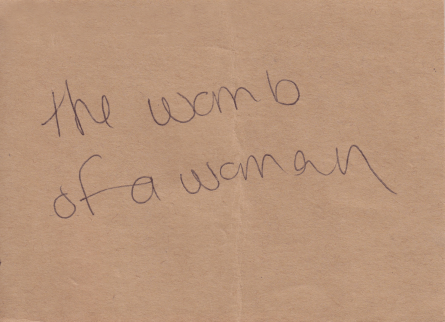 the womb
of a woman